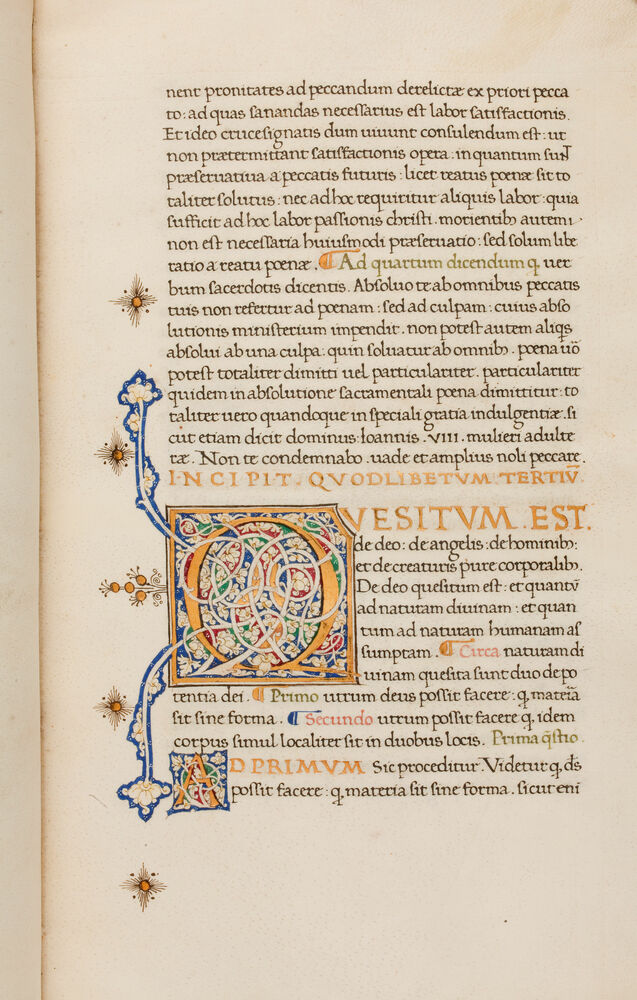 nent pronitates ad peccandum derelictæ ex priori pecca
to: ad quas sanandas necessarius est labor satisfactionis.
Et ideo crucesignatis dum uiuunt consulendum est: ut
non prætermittant satisfactionis opera: in quantum sunt
præseruatiua a peccatis futuris: licet reatus poenæ sit to
taliter solutus: nec ad hoc requiritur aliquis labor: quia
sufficit ad hoc labor passionis christi. morientib; autem
non est necessaria huiusmodi præseruatio: sed solum libe
ratio a reatu poenæ. ¶ Ad quartum dicendum q. uer
bum sacerdotis dicentis. Absoluo te ab omnibus peccatis
tuis non refertur ad poenam: sed ad culpam: cuius abso
lutionis ministerium impendit. non potest autem aliqs
absolui ab una culpa: quin soluatur ab omnib;. poena uõ
potest totaliter dimitti uel particulariter. particulariter
quidem in absolutione sacramentali poena dimittitur: to
taliter uero quandoque in speciali gratia indulgentiæ. si
cut etiam dicit dominus Ioannis .VIII. mulieri adulte
ræ. Non te condemnabo. uade et amplius noli peccare.
INCIPIT. QVODLIBETVM. TERTIV̄
QVESITVM. EST.
de deo: de angelis: de hominib;:
et de creaturis pure corporalib;.
De deo quesitum est: et quantū
ad naturam diuinam: et quan
tum ad naturam humanam as
sumptam. ¶ Circa naturam di
uinam quesita sunt duo de po
tentia dei. ¶ Primo utrum deus possit facere: q. materia
sit sine forma. ¶ Secundo utrum possit facere q. idem
corpus simul localiter sit in duobus locis. Prima q̄stio.
AD PRIMVM Sic proceditur. Videtur q. d̄s
possit facere: q. materia sit sine forma. sicut eni